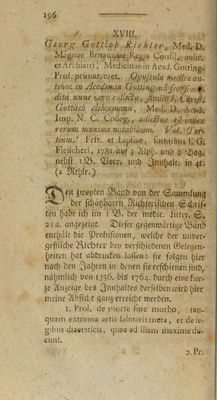 196
XVIII.
Georg Gottlob Richter, Med. D.
Magnae Britanniae Regis Consil. aulic.
et Archiatri, Medicinae in Acad. Götting.
Prof. primar. etc. Opuscula medica an-
tehac in Academia Gottingensi seorsim e-
dita nunc vero collecta, studio I. Christ.
Gottlieb Ackermann, Med. D. Acad.
Imp. N. C. Colleg. adiectus est index
rerum maxime notabilium. Vol. Ter-
tium. Frft. et Lipsiae, sumtibus I. G.
Fleischeri, 1781. auf 3 Alph. und 2 Bog.
nebst 1 B. Vorr. und Innhalt. in 4t.
(2 Rthlr.)
Den zweyten Band von der Sammlung
der schätzbaren Richterschen Schrif-
ten habe ich im 1 B. der medic. Litter. S.
214. angezeigt. Dieser gegenwärtige Band
enthält die Prolusionen, welche der unver-
geßliche Richter bey verschiedenen Gelegen-
heiten hat abdrucken lassen: sie folgen hier
nach den Jahren in denen sie erschienen sind,
nähmlich von 1736. bis 1764. durch eine kur-
ze Anzeige des Innhaltes derselben wird hier
meine Absicht ganz erreicht werden.
1. Prol. de morte sine morbo, tan-
quam extrema artis salutaris meta, et de le-
gibus diaeteticis, quae ad illam maxime du-
cunt.
2. Pr.